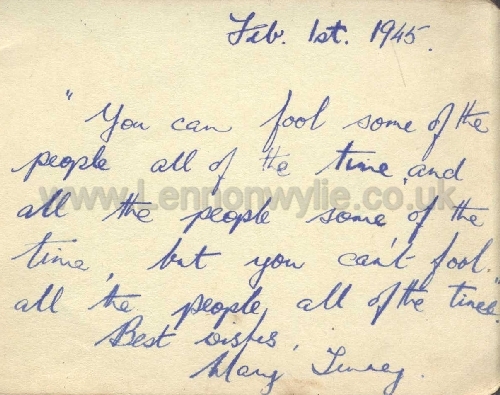 Feb. 1st. 1945.
"You can fool some of the
people all of the time, and
www.Lennonwylie.co.uk
all the people some of the
time, but you can't fool.
all the people, all of the time."
Best wishes,
Mary